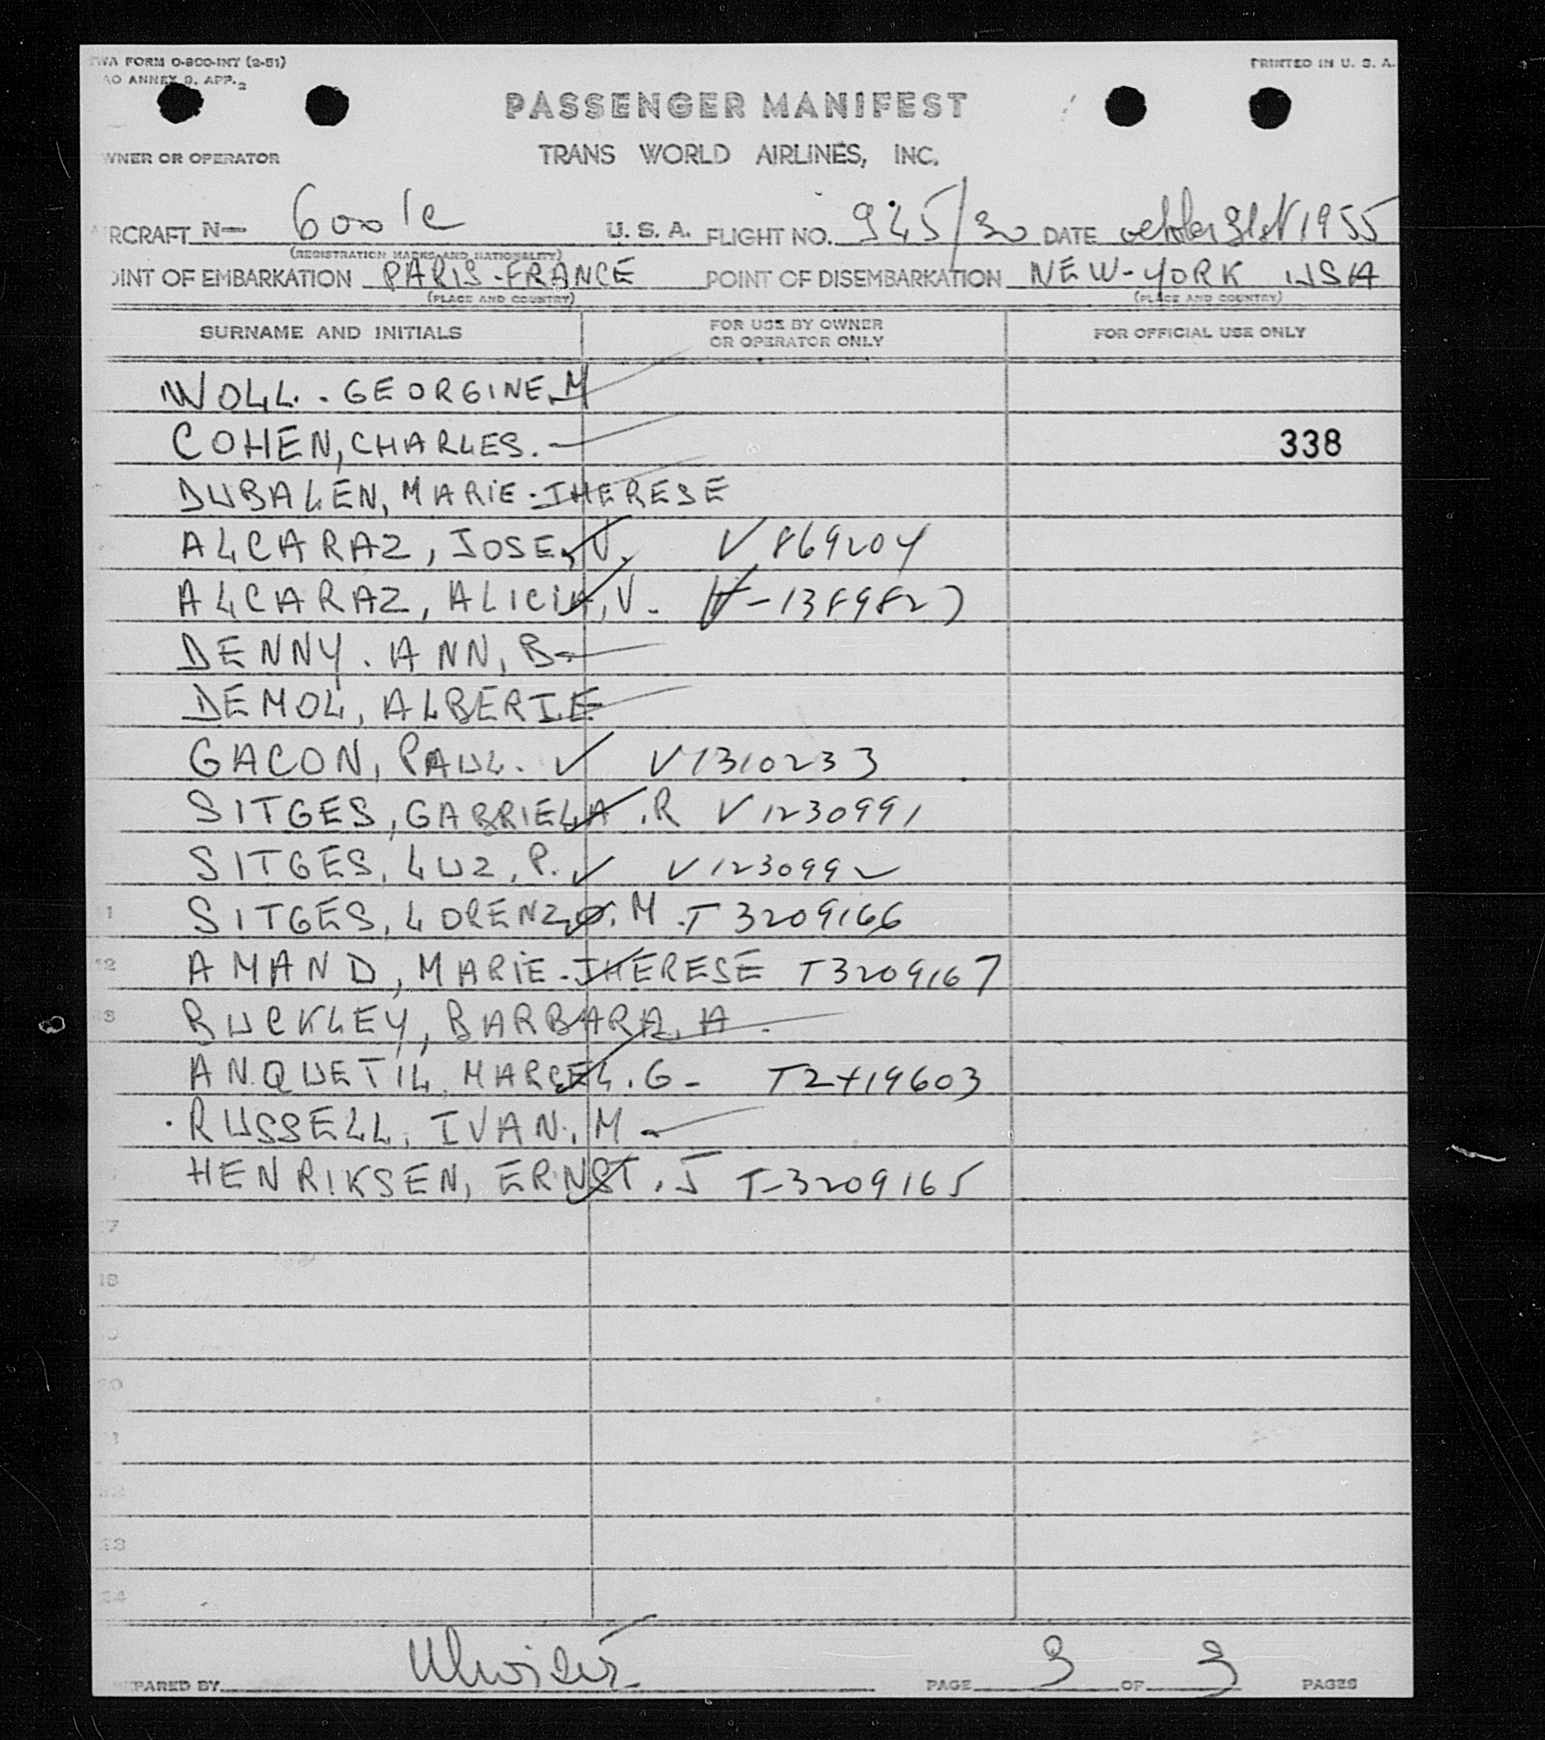 WA FORM 0-800-INT (2-51)
AO ANNEX 9, APP. 2
PRINTED IN U. S. A.
PASSENGER MANIFEST
TRANS WORLD AIRLINES, INC.
WNER OR OPERATOR
RCRAFT N- 6001C U. S. A. FLIGHT NO. 945/30 DATE october 31st 1955
(REGISTRATION MARKS AND NATIONALITY)
OINT OF EMBARKATION PARIS-FRANCE POINT OF DISEMBARKATION NEW-YORK USA
(PLACE AND COUNTRY) (PLACE AND COUNTRY)
SURNAME AND INITIALS FOR USE BY OWNER OR OPERATOR ONLY FOR OFFICIAL USE ONLY
WOLL. GEORGINE, M
COHEN, CHARLES. 338
DUBALEN, MARIE-THERESE
ALCARAZ, JOSE, V. V869204
ALCARAZ, ALICIA, V. V-1389827
DENNY. ANN, B
DEMOL, ALBERTE
GACON, PAUL. V1310233
SITGES, GABRIELA.R V1230991
SITGES, LUZ, P. V1230992
1 SITGES, LORENZO. M. T3209166
12 AMAND, MARIE-THERESE T3209167
3 BUCKLEY, BARBARA, A.
ANQUETIL, MARCEL. G- T2419603
RUSSELL, IVAN. M
HENRIKSEN, ERNST. J T-3209165
7
18
9
20
1
22
23
24
PARED BY PAGE 3 OF 3 PAGES